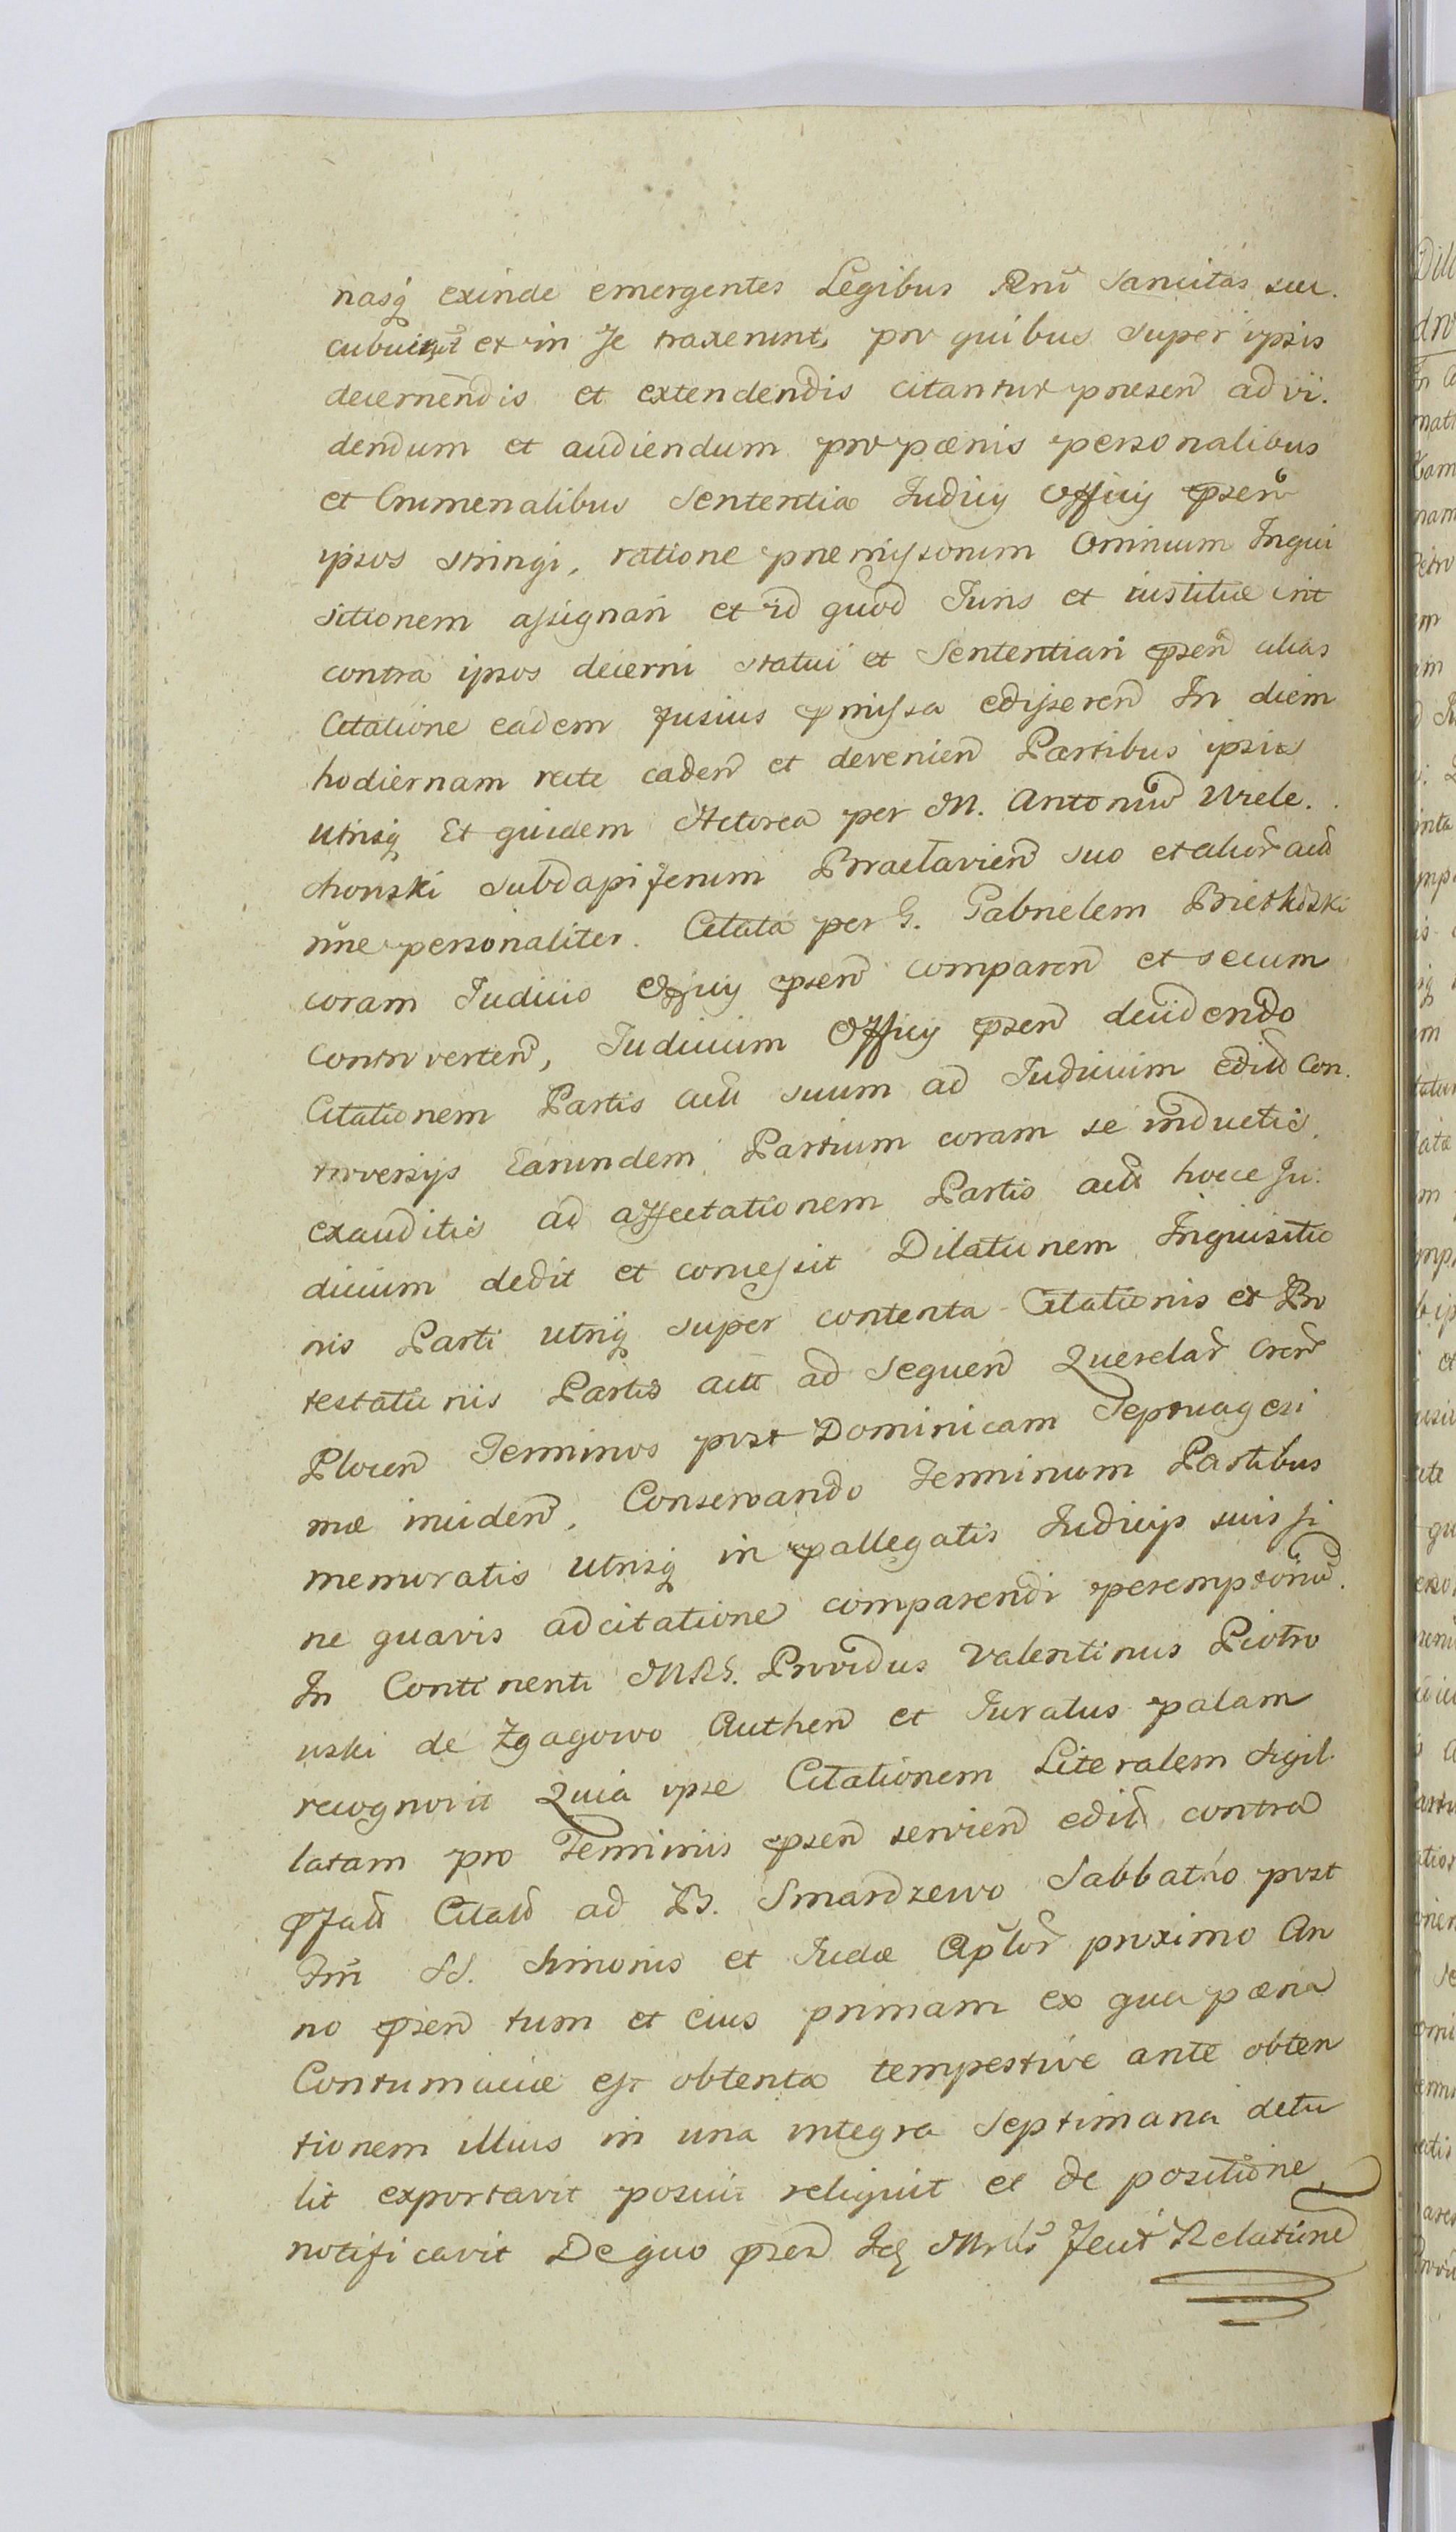 nasq exinde emergentes Legibus Rnū sancitas suc.
cubuerūt et in se traxerunt, pro quibus super ipsis
decernendis et extendendis citantur presen ad vi.
dendum et audiendum pro pœnis personalibus
et Crumenalibus Sententia Judicij Officij psen
ipsos stringi, ratione premissorum Omnium Inqui
sitionem assignari et id quod Juris et iustitiæ erit
contra ipsos decerni statui et Sententiari psen alias
Citatione eadem fusius pmissa edisseren In diem
hodiernam recte caden et devenien Partibus ipsis
utrisq Et quidem Actorea per M. Antoniū Wiele.
chowski subdapiferum Braclavien suo et alior act
nñe personaliter. Citata per G. Gabrielem
coram Judicio Officij psen comparen et secum
controverten, Judicium Officij psen decidendo
Citationem Partis act suum ad Judicium edit Con.
troversijs Earundem Partium coram se inductis,
exauditis ad affectationem Partis act hocce Ju:
dicium dedit et concessit Dilationem Inquisitio
nis Parti utriq super contenta Citationis et Pro
testationis Partis act ad sequen Querelar Oren
Plocen Terminos post Dominicam Septuagesi
mæ inciden, Conservando Terminum Partibus
memoratis utrisq in pallegatis Judicijs suis si
ne quavis adcitatione comparendi peremptoriū.
In Continenti MRG. Providus Valentinus Piotro
wski de Zgagowo Authen et Juratus palam
recognovit Quia ipse Citationem Literalem sigil.
latam pro Terminis psen servien edit contra
pfatt Citatt ad B. Smardzewo Sabbatho post
Fm̄ SS. Simonis et Judæ Aplor proximo An
no psen tum et eius primam ex qua pœna
Contumaciæ est obtenta tempestive ante obten
tionem illius in una integra Septimana detu
lit exportavit posuit reliquit et de positione
notificavit De quo psen Idq Mrlis fecit Relatione